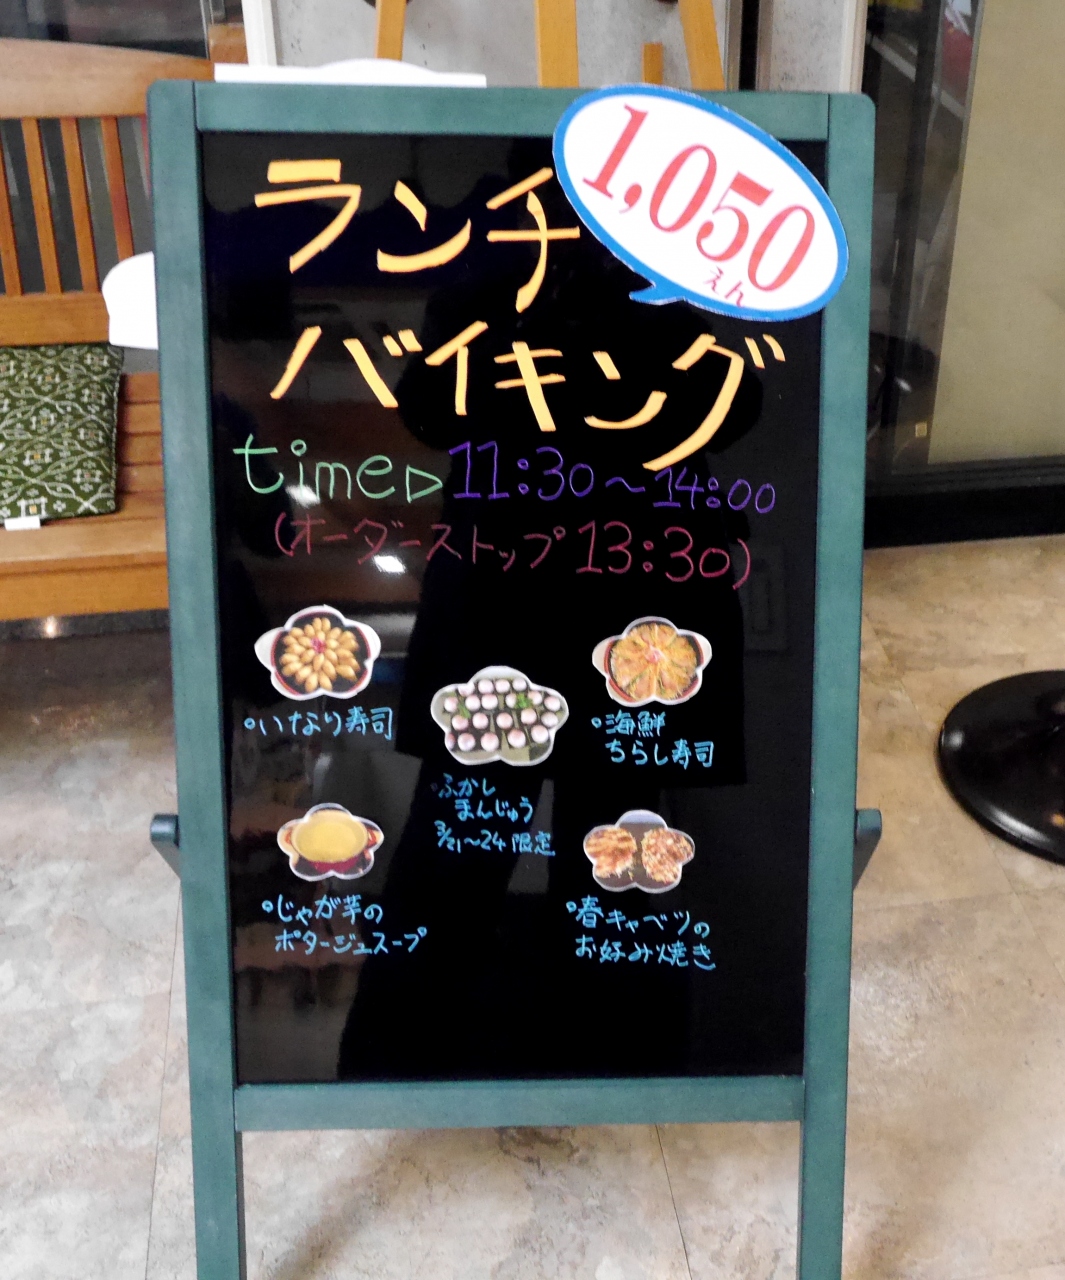 ランチ
1,050
えん
バイキング
time▷11:30〜14:00
(オーダーストップ 13:30)
・いなり寿司
・海鮮
ちらし寿司
・ふかし
まんじゅう
3/21〜24 限定
・じゃが芋の
ポタージュスープ
・春キャベツの
お好み焼き